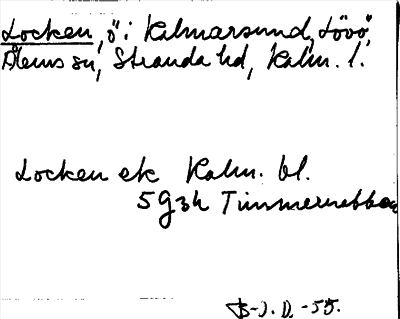 Locken, ö i Kalmarsund, Lövö,
Ålems sn, Stranda hd, Kalm. l.
Locken ek Kalm. bl.
5 g 3 h Timmernabben
B-J. D. -55.